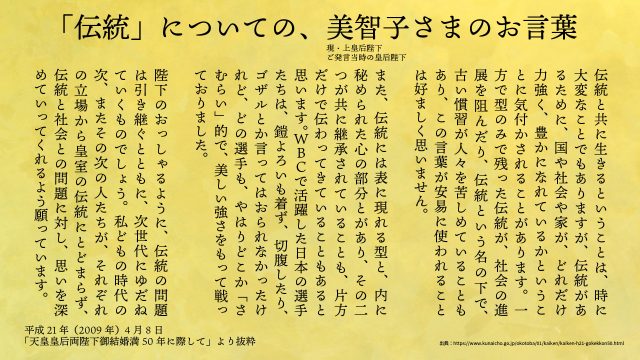 「伝統」についての、美智子さまのお言葉
現・上皇后陛下
ご発言当時の皇后陛下
伝統と共に生きるということは、時に
大変なことでもありますが、伝統があ
るために、国や社会や家が、どれだけ
力強く、豊かになれているかというこ
とに気付かされることがあります。一
方で型のみで残った伝統が、社会の進
展を阻んだり、伝統という名の下で、
古い慣習が人々を苦しめていることも
あり、この言葉が安易に使われること
は好ましく思いません。
また、伝統には表に現れる型と、内に
秘められた心の部分とがあり、その二
つが共に継承されていることも、片方
だけで伝わってきていることもあると
思います。WBCで活躍した日本の選手
たちは、鎧よろいも着ず、切腹したり、
ゴザルとか言ってはおられなかったけ
れど、どの選手も、やはりどこか「さ
むらい」的で、美しい強さをもって戦っ
ておりました。
陛下のおっしゃるように、伝統の問題
は引き継ぐとともに、次世代にゆだね
ていくものでしょう。私どもの時代の
次、またその次の人たちが、それぞれ
の立場から皇室の伝統にとどまらず、
伝統と社会との問題に対し、思いを深
めていってくれるよう願っています。
平成21年（2009年）4月8日
「天皇皇后両陛下御結婚満50年に際して」より抜粋
出典：https://www.kunaicho.go.jp/okotoba/01/kaiken/kaiken-h21-gokekkon50.html